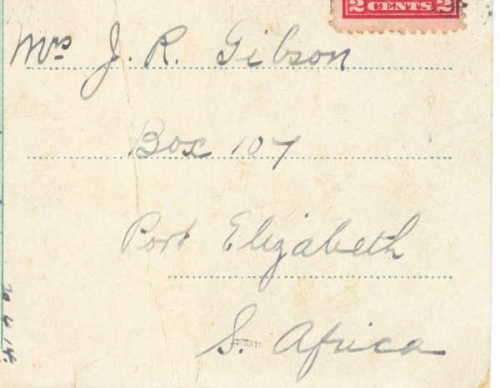 2 CENTS 2
Mrs J. R. Gibson
Box 107
Port Elizabeth
S. Africa